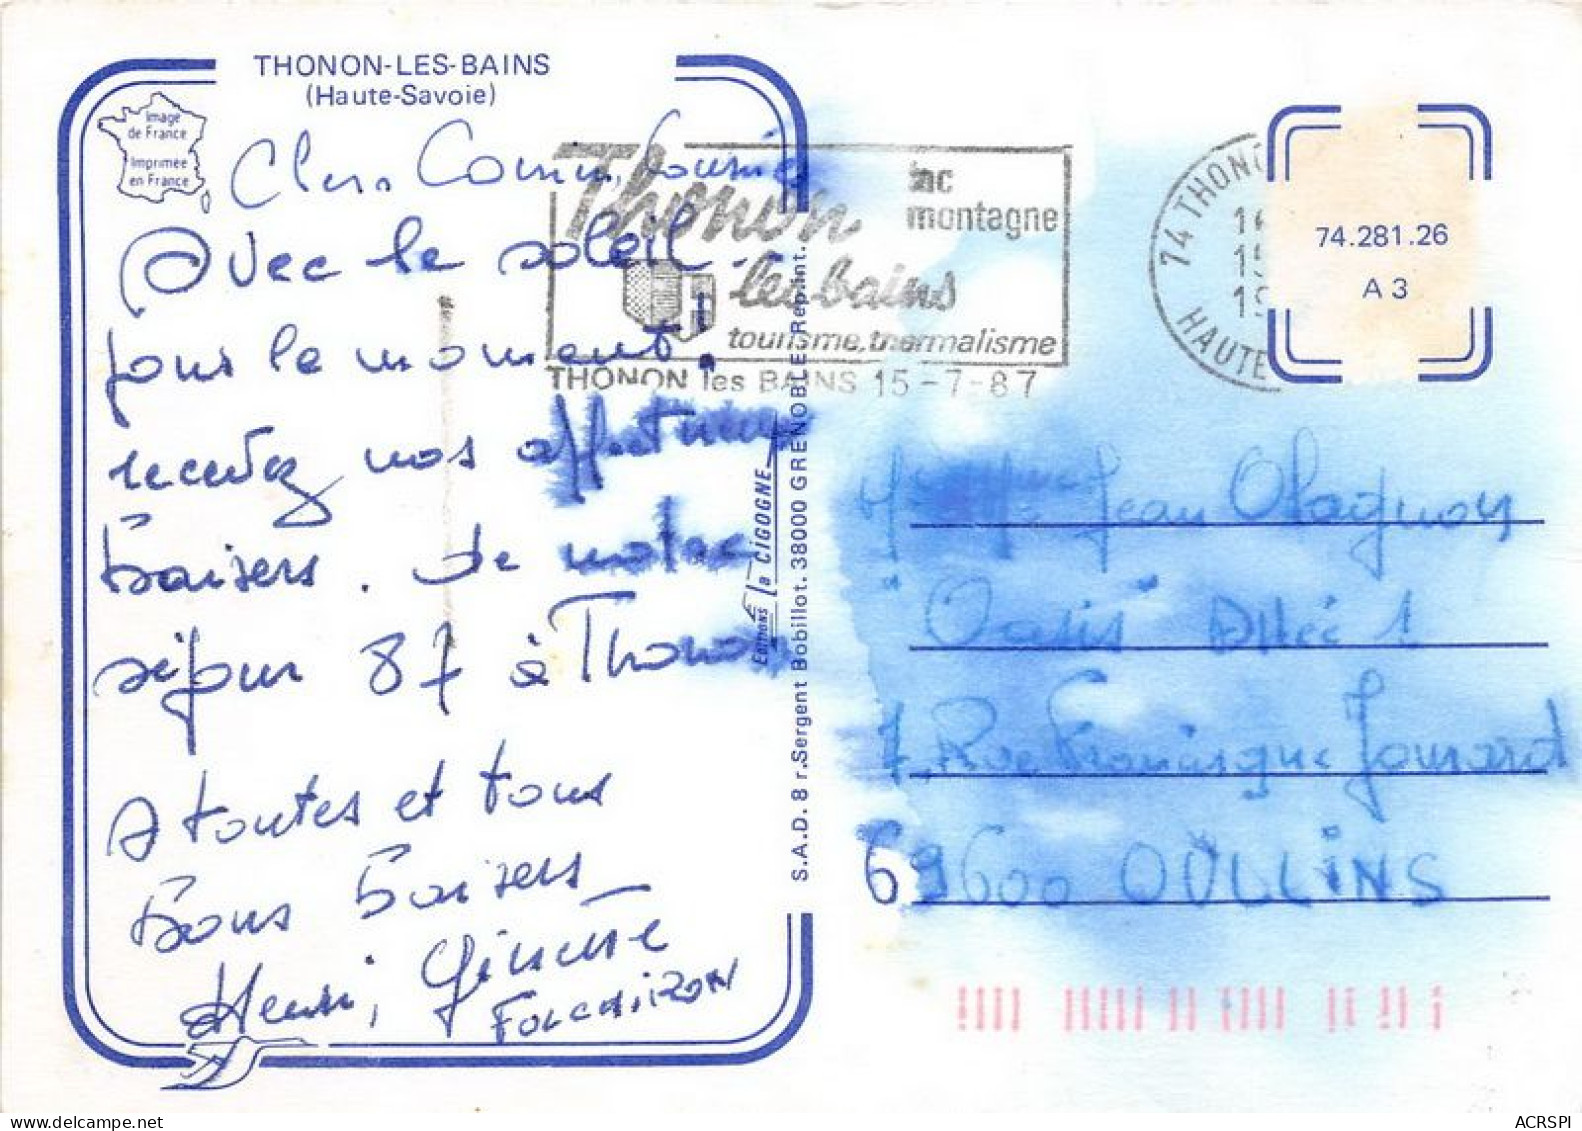 THONON-LES-BAINS
(Haute-Savoie)
Image
de France
Imprimée
en France
Chers Cousin, Cousine
Avec le soleil
pour le moment!
recevez nos affectueux
baisers. de notre
séjour 87 à Thonon
A toutes et tous
Bons baisers
Henri, Ginette
FOUCHIRON
Editions La CIGOGNE
S.A.D. 8 r. Sergent Bobillot. 38000 GRENOBLE Rep. int.
Thonon
les-bains
lac
montagne
tourisme, thermalisme
THONON les BAINS 15-7-87
74 THONO
HAUTE
74.281.26
A 3
Jean Olagnon
Oasis Allée 1
7 Rue Francisque Jomard
69600 OULLINS
ACRSPI